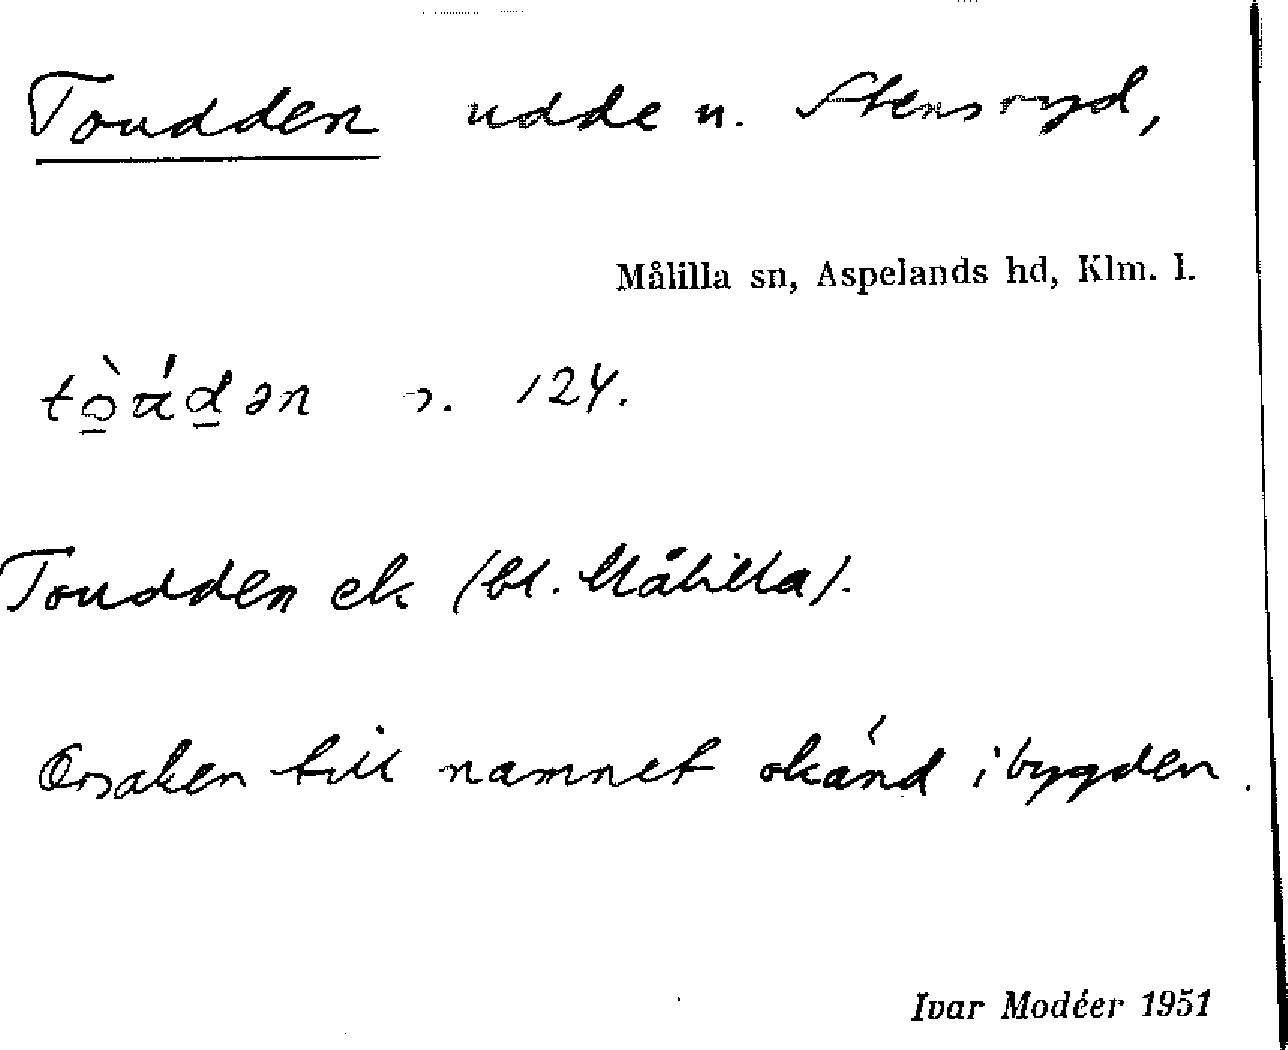 Toudden udde n. Stensryd,
Målilla sn, Aspelands hd, Klm. l.
124.
Toudden ek (bl. Målilla).
Orsaken till namnet okänd i bygden.
Ivar Modéer 1951